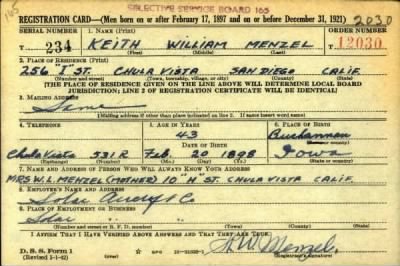 165
SELECTIVE SERVICE BOARD 165
REGISTRATION CARD—(Men born on or after February 17, 1897 and on or before December 31, 1921) 2030
SERIAL NUMBER 1. NAME (Print) ORDER NUMBER
T 234 KEITH WILLIAM MENZEL T 12030
(First) (Middle) (Last)
2. PLACE OF RESIDENCE (Print)
256 "I" ST. CHULA VISTA SAN DIEGO CALIF.
(Number and street) (Town, township, village, or city) (County) (State)
[THE PLACE OF RESIDENCE GIVEN ON THE LINE ABOVE WILL DETERMINE LOCAL BOARD
JURISDICTION; LINE 2 OF REGISTRATION CERTIFICATE WILL BE IDENTICAL]
3. MAILING ADDRESS
Same
[Mailing address if other than place indicated on line 2. If same insert word same]
4. TELEPHONE 5. AGE IN YEARS 6. PLACE OF BIRTH
43 Buchannan
DATE OF BIRTH (Town or county)
Chula Vista 531R Feb. 20 1898 Iowa
(Exchange) (Number) (Mo.) (Day) (Yr.) (State or country)
7. NAME AND ADDRESS OF PERSON WHO WILL ALWAYS KNOW YOUR ADDRESS
MRS W.L. MENZEL (MOTHER) 10 "H" ST. CHULA VISTA CALIF
8. EMPLOYER'S NAME AND ADDRESS
Solar & Co
9. PLACE OF EMPLOYMENT OR BUSINESS
Solar
(Number and street or R. F. D. number) (Town) (County) (State)
I AFFIRM THAT I HAVE VERIFIED ABOVE ANSWERS AND THAT THEY ARE TRUE.
D. S. S. Form 1
(Revised 1-1-42) (over) K.W. Menzel